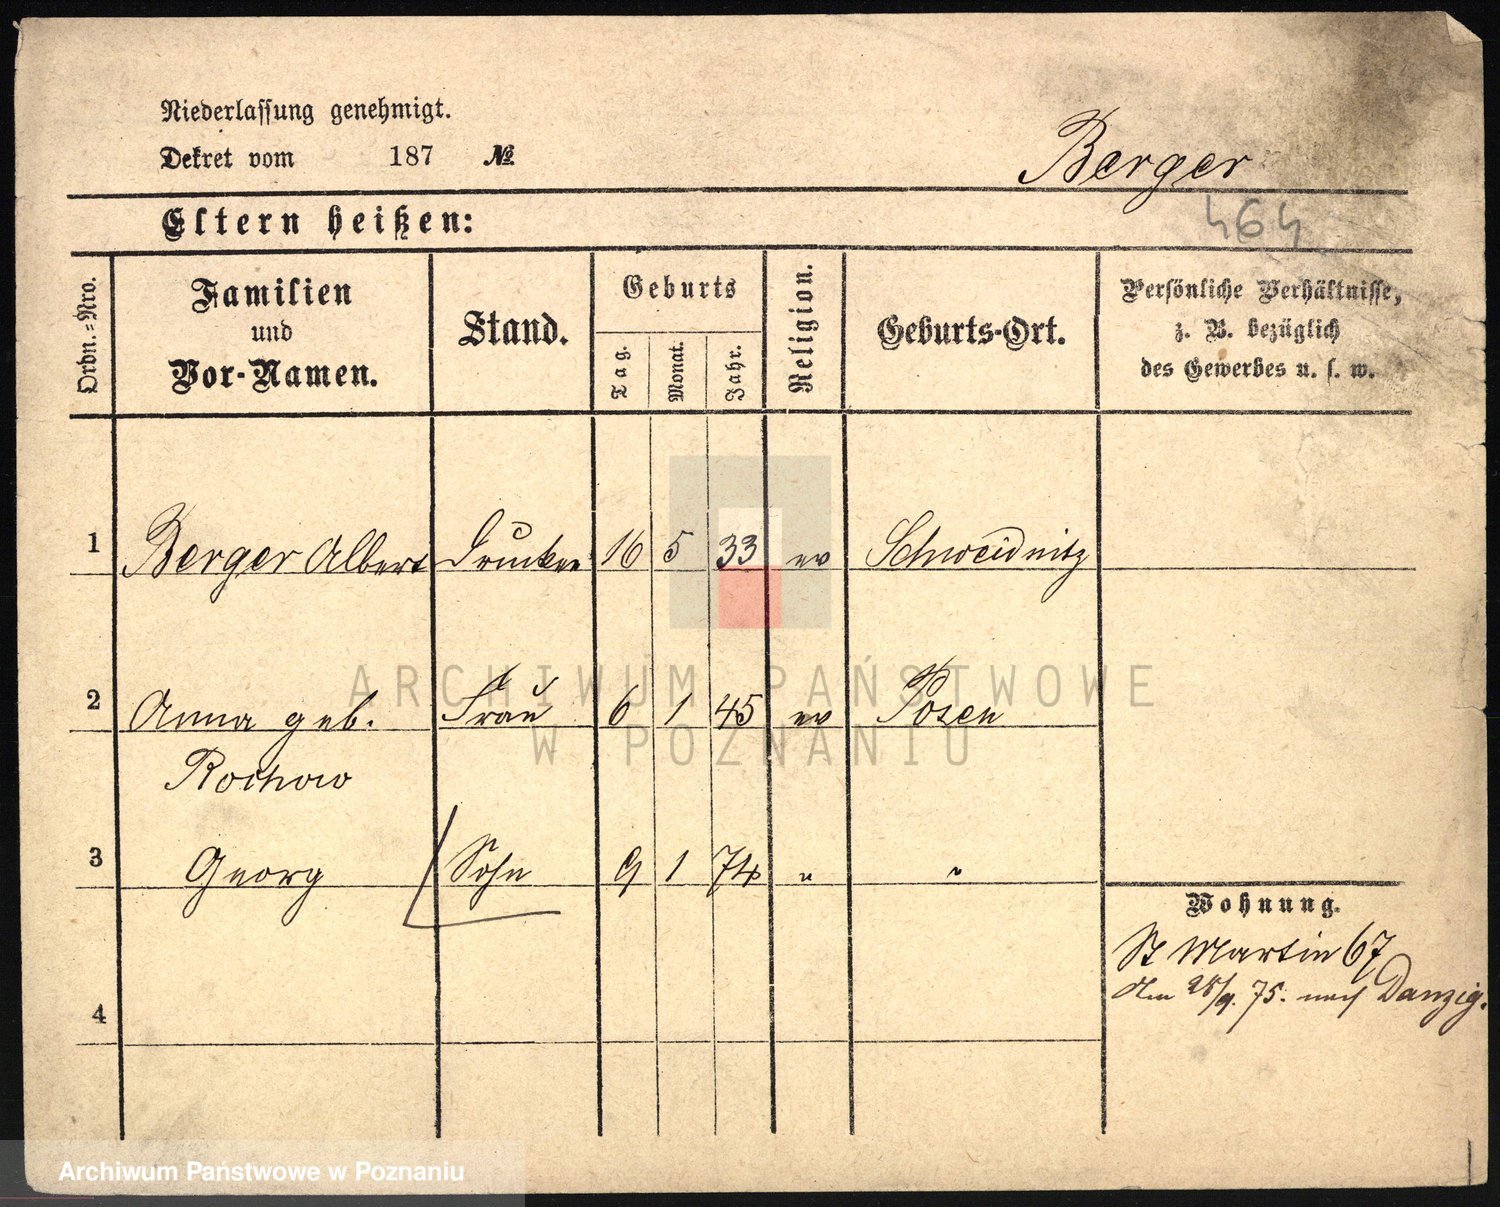 Niederlassung genehmigt.
Dekret vom 187 №
Berger
464
Eltern heißen:
Ordn.=Nro.
Familien und Vor-Namen.
Stand.
Geburts
Tag.
Monat.
Jahr.
Religion.
Geburts-Ort.
Persönliche Verhältnisse,
z. B. bezüglich
des Gewerbes u. s. w.
1 Berger Albert Drucker 16 5 33 ev Schweidnitz
2 Anna geb. Frau 6 1 45 ev Posen
Rochow
3 Georg Sohn 9 1 74 " "
Wohnung.
St Martin 67
Am 28/9. 75. nach Danzig.
4
ARCHIWUM PAŃSTWOWE
W POZNANIU
Archiwum Państwowe w Poznaniu